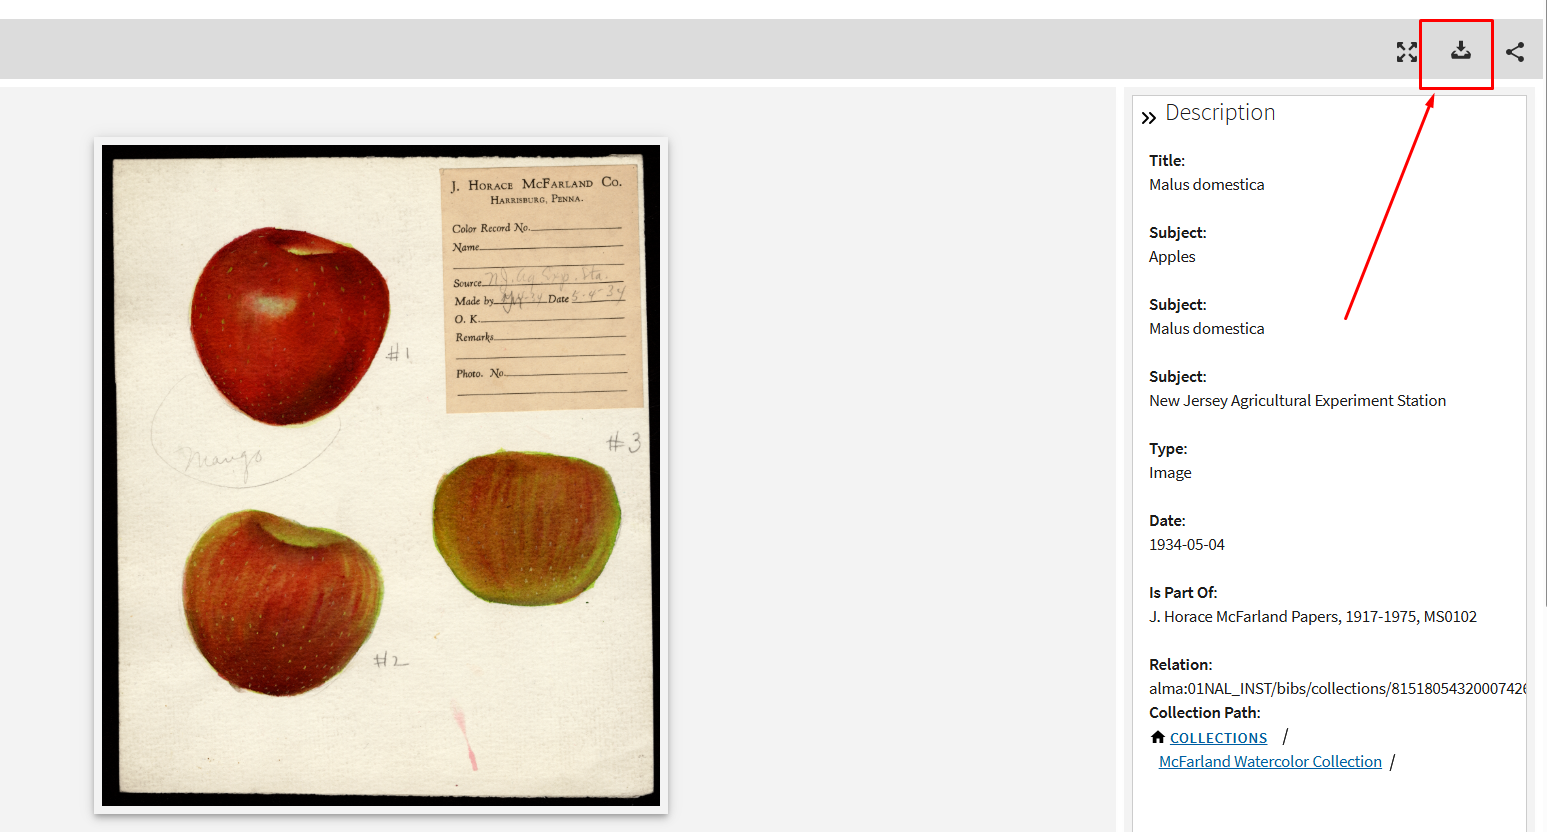 J. Horace McFarland Co.
Harrisburg, Penna.
Color Record No.
Name
Source N.J. Ag Exp. Sta.
Made by Date 5-4-34
O. K.
Remarks
Photo. No.
#1
Mango
#3
#2
Description
Title:
Malus domestica
Subject:
Apples
Subject:
Malus domestica
Subject:
New Jersey Agricultural Experiment Station
Type:
Image
Date:
1934-05-04
Is Part Of:
J. Horace McFarland Papers, 1917-1975, MS0102
Relation:
alma:01NAL_INST/bibs/collections/8151805432000742
Collection Path:
COLLECTIONS /
McFarland Watercolor Collection /